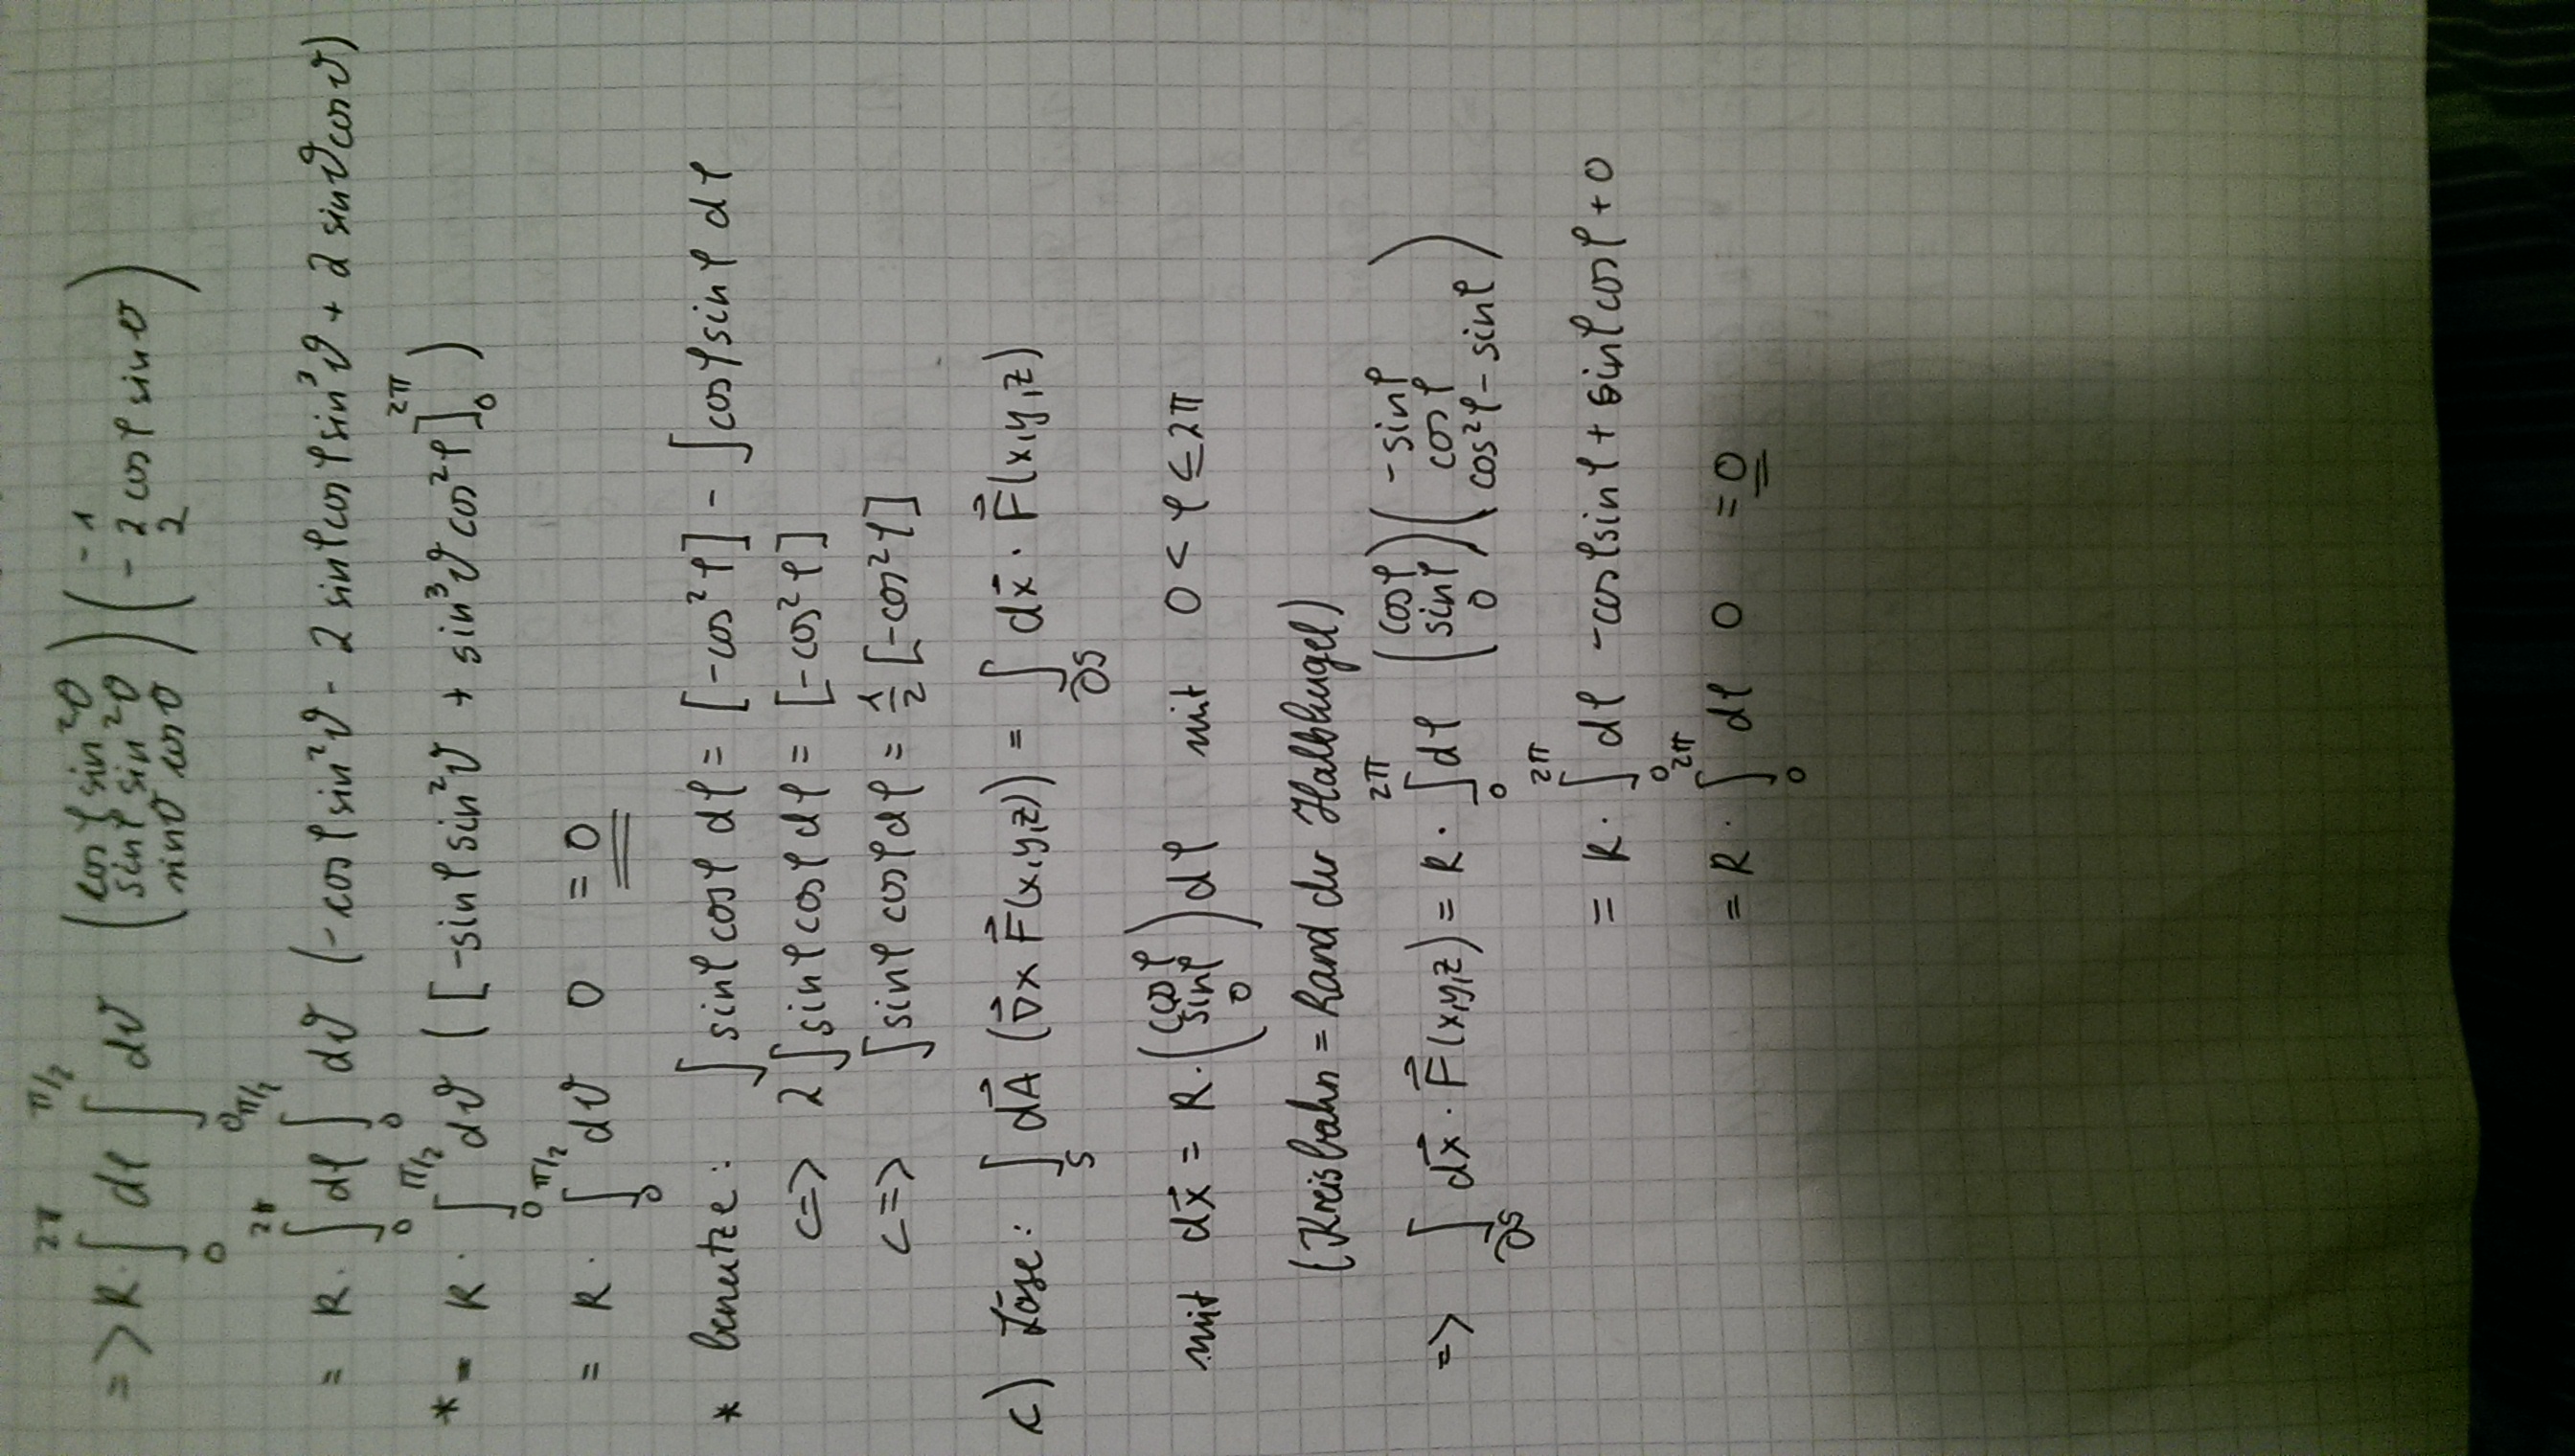 => R · ∫₀^{2π} dφ ∫₀^{π/2} dϑ (cosφ sin²ϑ, sinφ sin²ϑ, sinϑ cosϑ) (-1, -2 cosφ sinϑ, 2)
= R · ∫₀^{2π} dφ ∫₀^{π/2} dϑ (-cosφ sin²ϑ - 2 sinφ cosφ sin³ϑ + 2 sinϑ cosϑ)
*= R · ∫₀^{π/2} dϑ ([-sinφ sin²ϑ + sin³ϑ cos²φ]₀^{2π})
= R · ∫₀^{π/2} dϑ 0 = 0
* benutze: ∫ sinφ cosφ dφ = [-cos²φ] - ∫ cosφ sinφ dφ
<=> 2 ∫ sinφ cosφ dφ = [-cos²φ]
<=> ∫ sinφ cosφ dφ = 1/2 [-cos²φ]
c) Löse: ∫_S dA⃗ (∇⃗ x F⃗(x,y,z)) = ∫_{∂S} dx⃗ · F⃗(x,y,z)
mit dx⃗ = R · (cosφ, sinφ, 0) dφ mit 0 < φ ≤ 2π
(Kreisbahn = Rand der Halbkugel)
=> ∫_{∂S} dx⃗ · F⃗(x,y,z) = R · ∫₀^{2π} dφ (cosφ, sinφ, 0) (-sinφ, cosφ, cos²φ - sinφ)
= R · ∫₀^{2π} dφ -cosφ sinφ + sinφ cosφ + 0
= R · ∫₀^{2π} dφ 0 = 0